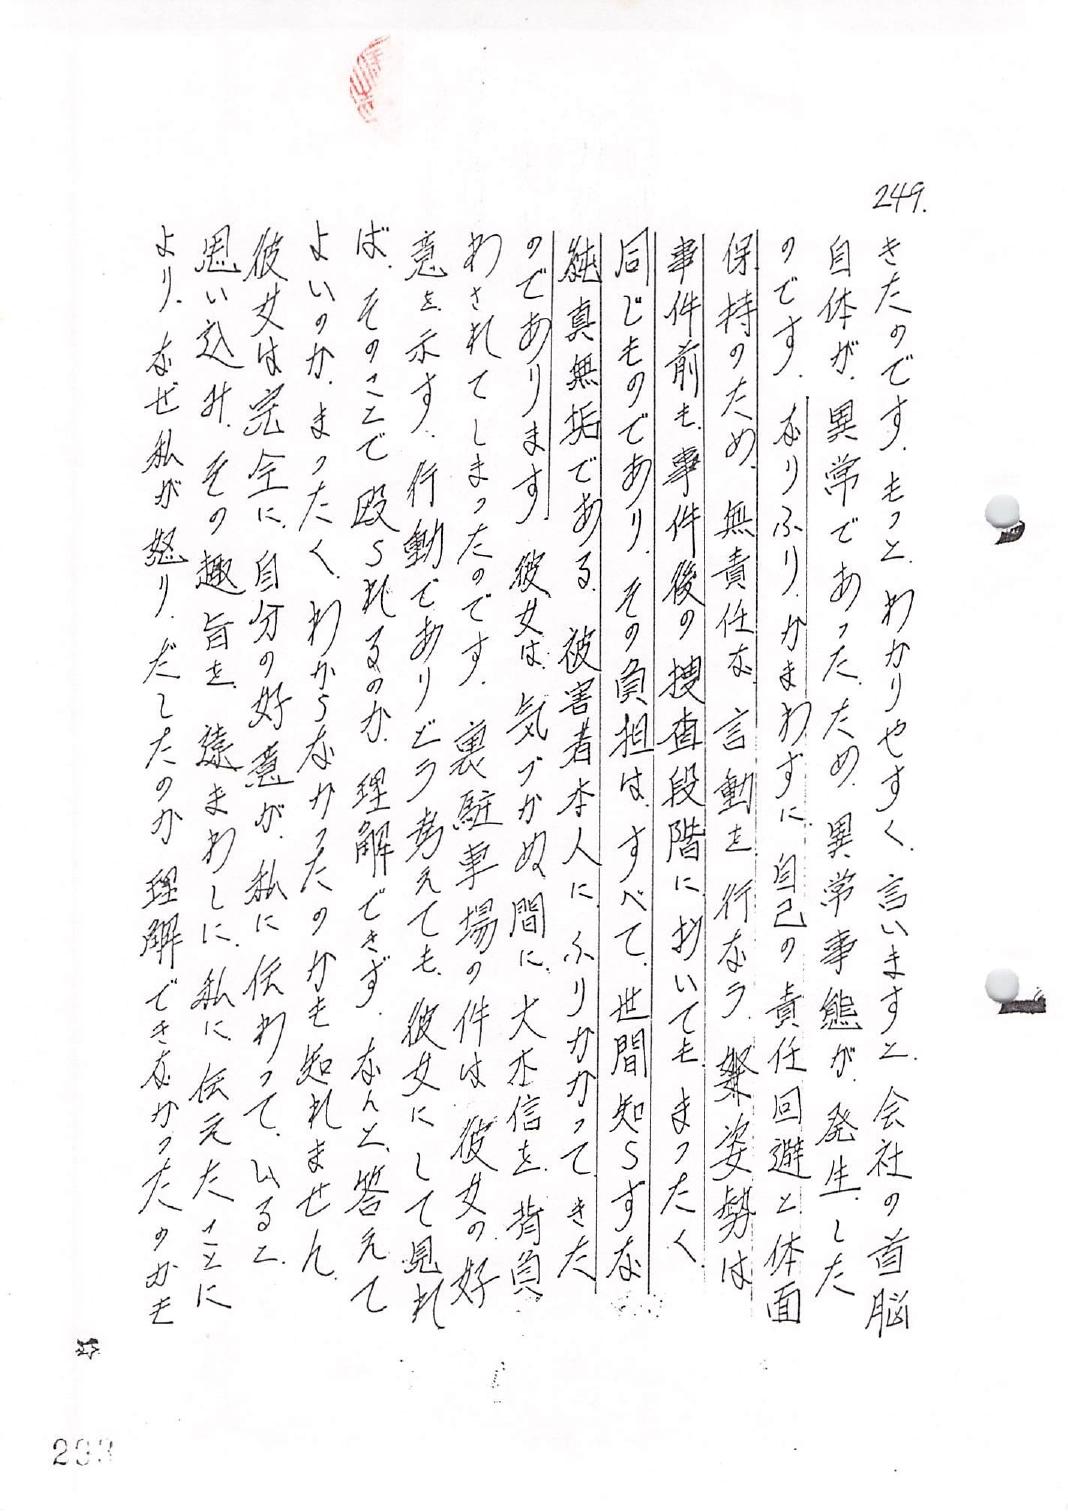 249.
きたのです。もっと、わかりやすく、言いますと、会社の首脳
自体が、異常であった、ため、異常事態が、発生、した
のです。なりふり、かまわずに、自己の責任回避と体面
保持のため、無責任な、言動を、行なう、姿勢は
事件前も、事件後の、捜査段階に、おいても、まったく、
同じものであり、その負担は、すべて、世間知らずな
純真無垢である、被害者本人に、ふりかかって、きた
のであります。彼女は、気づかぬ、間に、大本信を、背負
わされてしまったのです。裏駐車場の件は、彼女の好
意を、示す、行動でありどう考えても、彼女にして見れ
ば、そのことで殴られるのか、理解できず、なんと、答えて
よいのか、まったく、わからなかったのかも知れません。
彼女は完全に、自分の好意が、私に伝わって、いると、
思い込み、その趣旨を、遠まわしに、私に、伝えたことに
より、なぜ私が、怒り、だしたのか理解できなかったのかも